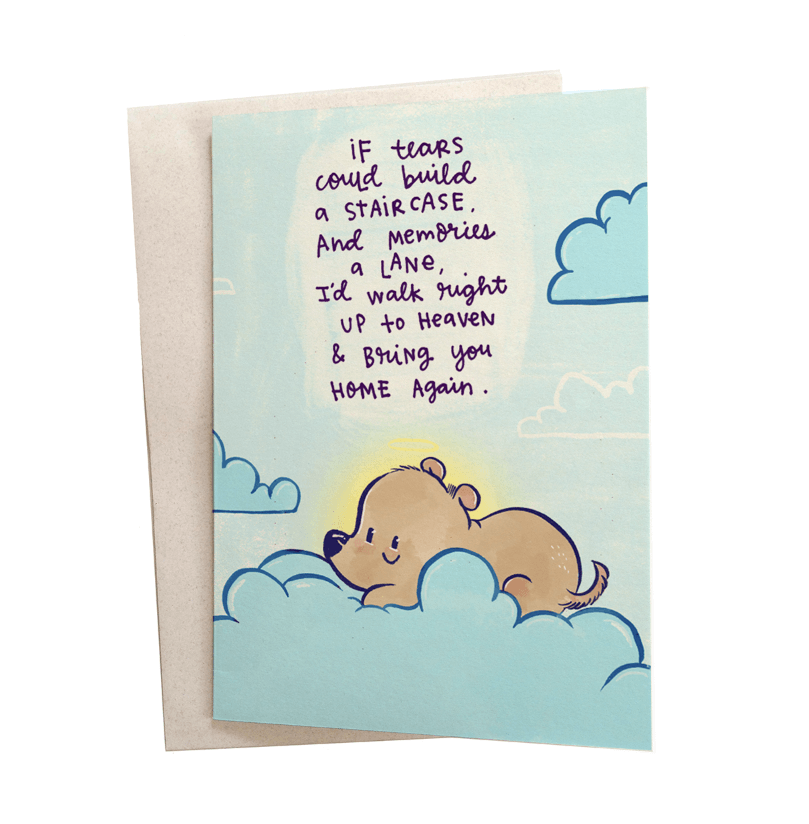 iF tears
could build
a STAiRCASE,
And memories
a LANe,
I'd walk right
UP to HeaveN
& BRiNG you
HOME Again.